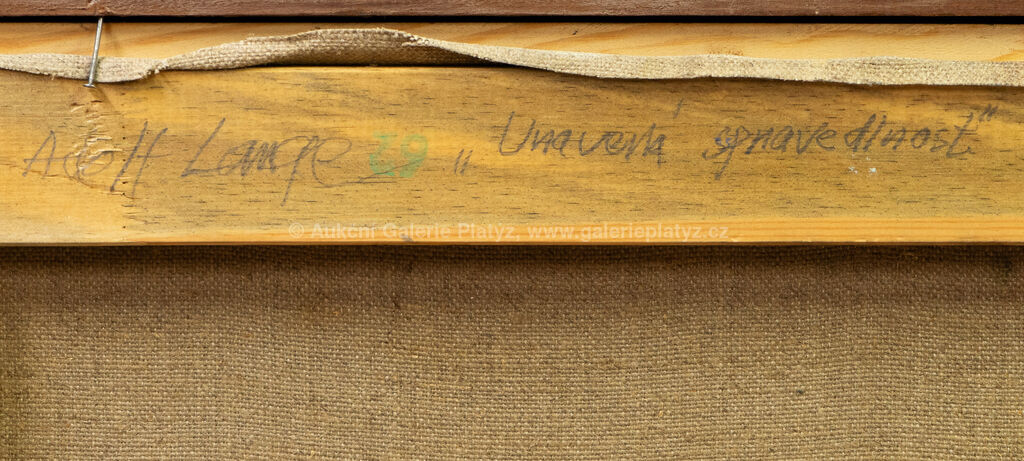 Adolf Lange 29 „Unavená spravedlnost"
© Aukční Galerie Platýz, www.galerieplatyz.cz